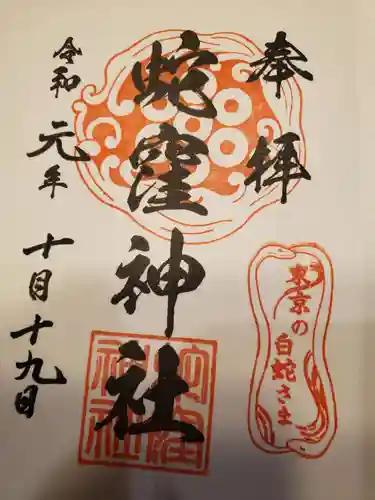 奉拝
蛇窪神社
令和元年
十月十九日
東京の白蛇さま
蛇窪
神社